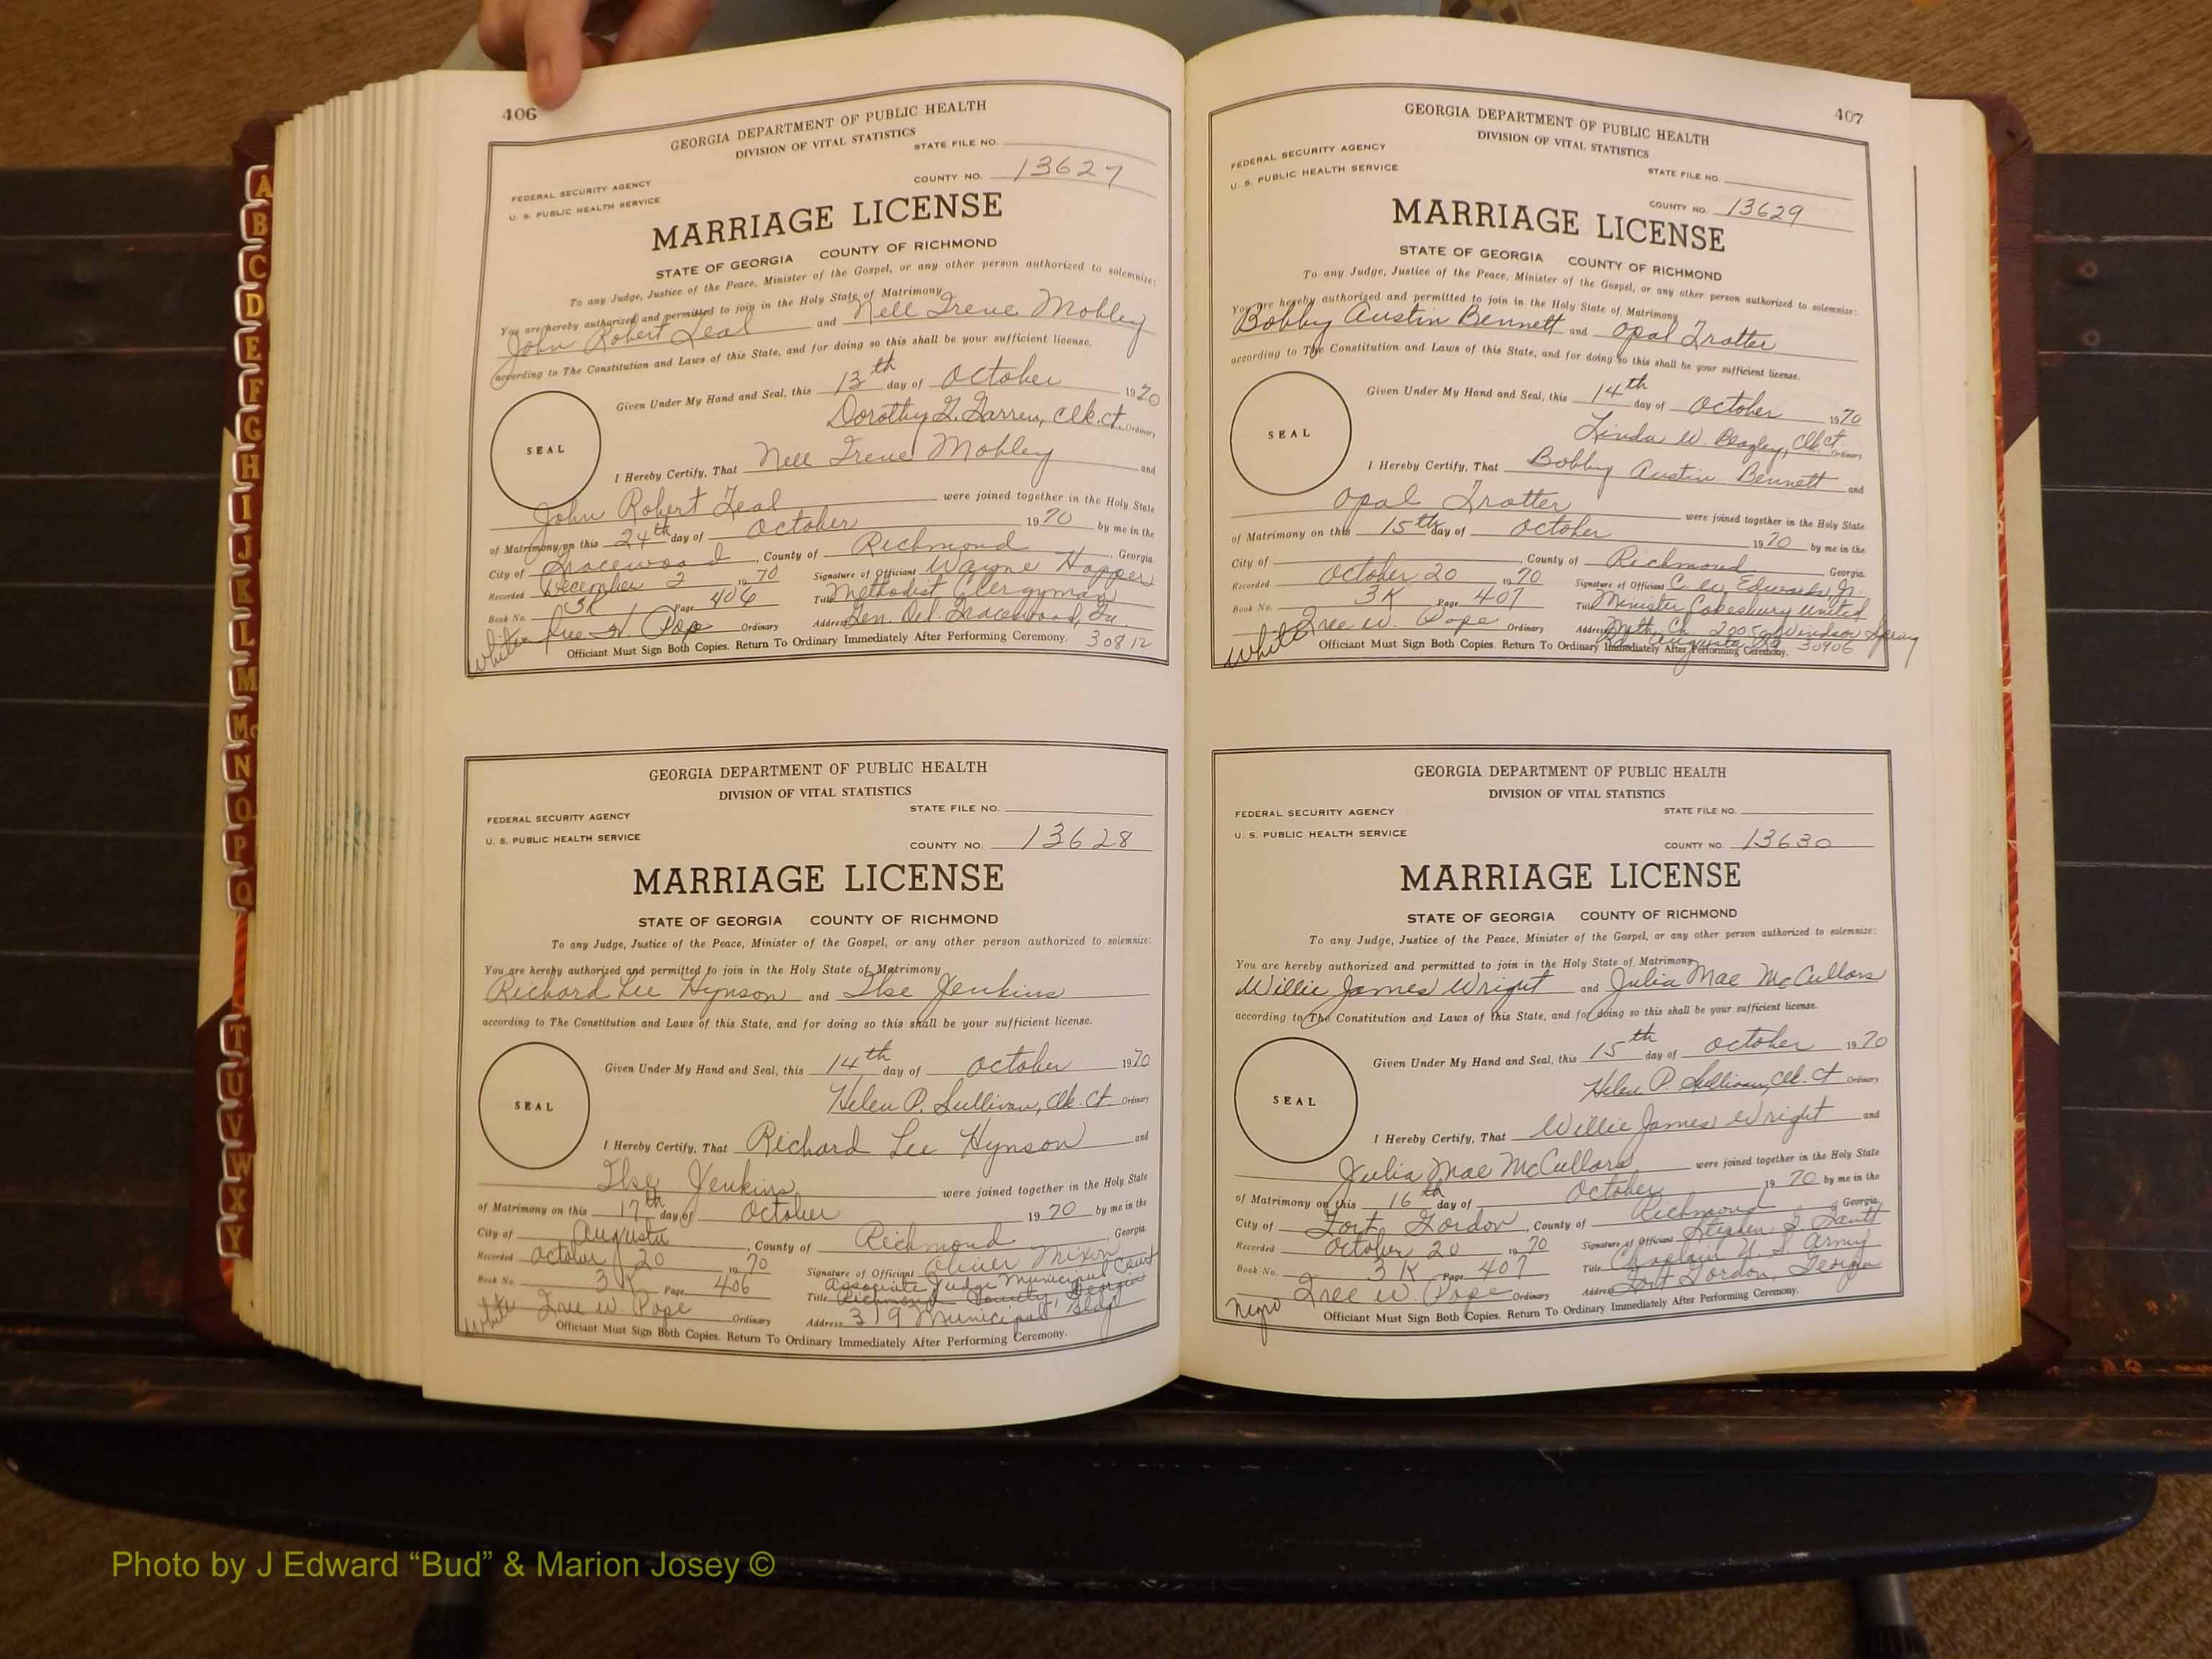 406
GEORGIA DEPARTMENT OF PUBLIC HEALTH
DIVISION OF VITAL STATISTICS
STATE FILE NO.
FEDERAL SECURITY AGENCY
U. S. PUBLIC HEALTH SERVICE
COUNTY NO. 13627
MARRIAGE LICENSE
STATE OF GEORGIA COUNTY OF RICHMOND
To any Judge, Justice of the Peace, Minister of the Gospel, or any other person authorized to solemnize:
You are hereby authorized and permitted to join in the Holy State of Matrimony
John Robert Teal and Nell Irene Mobley
according to The Constitution and Laws of this State, and for doing so this shall be your sufficient license.
Given Under My Hand and Seal, this 13th day of October 1970
Dorothy G. Garren, Clk. Ct. Ordinary
SEAL
I Hereby Certify, That Nell Irene Mobley and
John Robert Teal were joined together in the Holy State
of Matrimony on this 24th day of October 1970 by me in the
City of Gracewood, County of Richmond, Georgia.
Recorded December 2 1970 Signature of Officiant Wayne Hopper
Book No. 3K Page 406 Title Methodist Clergyman
White Ordinary Address Gen. Del. Gracewood, Ga.
Officiant Must Sign Both Copies. Return To Ordinary Immediately After Performing Ceremony. 30812
GEORGIA DEPARTMENT OF PUBLIC HEALTH
DIVISION OF VITAL STATISTICS
STATE FILE NO.
FEDERAL SECURITY AGENCY
U. S. PUBLIC HEALTH SERVICE
COUNTY NO. 13628
MARRIAGE LICENSE
STATE OF GEORGIA COUNTY OF RICHMOND
To any Judge, Justice of the Peace, Minister of the Gospel, or any other person authorized to solemnize:
You are hereby authorized and permitted to join in the Holy State of Matrimony
Richard Lee Hynson and Ilse Jenkins
according to The Constitution and Laws of this State, and for doing so this shall be your sufficient license.
Given Under My Hand and Seal, this 14th day of October 1970
Helen P. Sullivan, Clk. Ct. Ordinary
SEAL
I Hereby Certify, That Richard Lee Hynson and
Ilse Jenkins were joined together in the Holy State
of Matrimony on this 17th day of October 1970 by me in the
City of Augusta, County of Richmond, Georgia.
Recorded October 20 1970 Signature of Officiant Oliver Mixon
Book No. 3K Page 406 Title Associate Judge Municipal Court
Richmond County, Georgia
White Ordinary Address 319 Municipal Bldg
Officiant Must Sign Both Copies. Return To Ordinary Immediately After Performing Ceremony.
407
GEORGIA DEPARTMENT OF PUBLIC HEALTH
DIVISION OF VITAL STATISTICS
FEDERAL SECURITY AGENCY
U. S. PUBLIC HEALTH SERVICE
STATE FILE NO.
COUNTY NO. 13629
MARRIAGE LICENSE
STATE OF GEORGIA COUNTY OF RICHMOND
To any Judge, Justice of the Peace, Minister of the Gospel, or any other person authorized to solemnize:
You are hereby authorized and permitted to join in the Holy State of Matrimony
Bobby Austin Bennett and Opal Trotter
according to The Constitution and Laws of this State, and for doing so this shall be your sufficient license.
Given Under My Hand and Seal, this 14th day of October 1970
Linda W. Beazley, Clk. Ct. Ordinary
SEAL
I Hereby Certify, That Bobby Austin Bennett and
Opal Trotter were joined together in the Holy State
of Matrimony on this 15th day of October 1970 by me in the
City of , County of Richmond Georgia
Recorded October 20 1970 Signature of Officiant C. W. Edwards Jr.
Book No. 3K Page 407 Title Minister Cokesbury United
White Ordinary Address Meth. Ch. 2005 Windsor Spring
Rd. Augusta Ga 30906
Officiant Must Sign Both Copies. Return To Ordinary Immediately After Performing Ceremony.
GEORGIA DEPARTMENT OF PUBLIC HEALTH
DIVISION OF VITAL STATISTICS
FEDERAL SECURITY AGENCY
STATE FILE NO.
U. S. PUBLIC HEALTH SERVICE
COUNTY NO. 13630
MARRIAGE LICENSE
STATE OF GEORGIA COUNTY OF RICHMOND
To any Judge, Justice of the Peace, Minister of the Gospel, or any other person authorized to solemnize:
You are hereby authorized and permitted to join in the Holy State of Matrimony
Willie James Wright and Julia Mae McCullars
according to The Constitution and Laws of this State, and for doing so this shall be your sufficient license.
Given Under My Hand and Seal, this 15th day of October 1970
Helen P. Sullivan, Clk. Ct Ordinary
SEAL
I Hereby Certify, That Willie James Wright and
Julia Mae McCullars were joined together in the Holy State
of Matrimony on this 16th day of October 1970 by me in the
City of Fort Gordon, County of Richmond Georgia
Recorded October 20 1970 Signature of Officiant Stephen
Book No. 3K Page 407 Title Chaplain U. S. Army
Negro Ordinary Address Fort Gordon, Georgia
Officiant Must Sign Both Copies. Return To Ordinary Immediately After Performing Ceremony.
A
B
C
D
E
F
G
H
I
J
K
L
M
Mc
N
O
P
Q
T
U
V
W
X
Y
Photo by J Edward “Bud” & Marion Josey ©